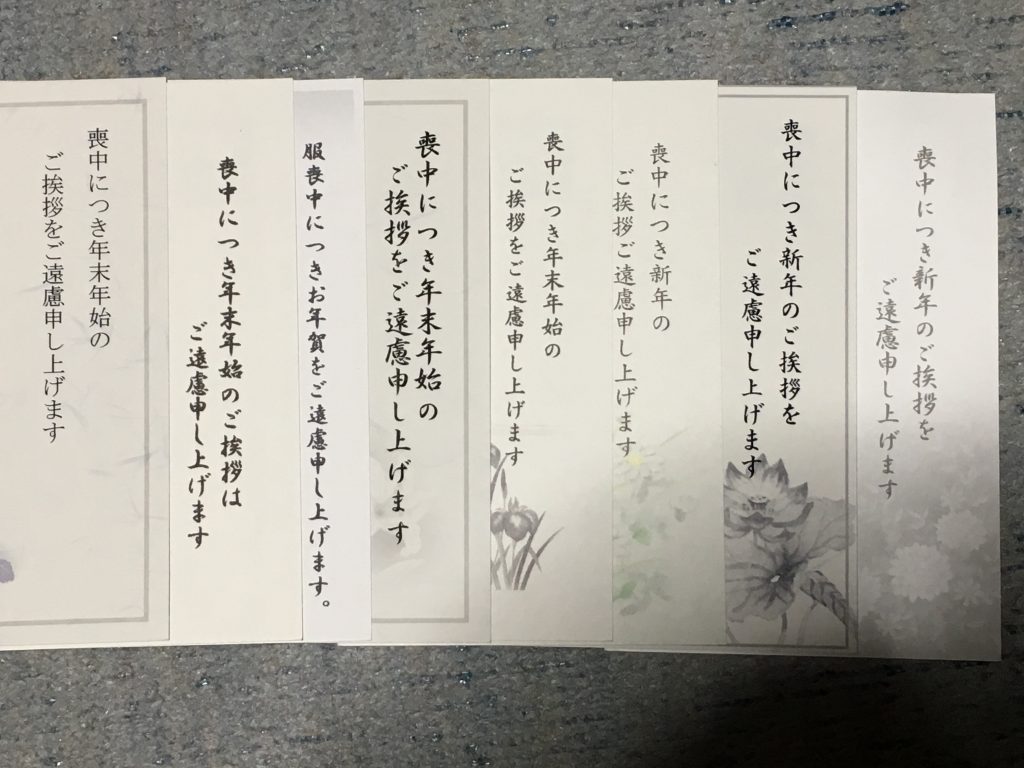 喪中につき新年のご挨拶を
ご遠慮申し上げます
喪中につき新年のご挨拶を
ご遠慮申し上げます
喪中につき新年の
ご挨拶ご遠慮申し上げます
喪中につき年末年始の
ご挨拶をご遠慮申し上げます
喪中につき年末年始の
ご挨拶をご遠慮申し上げます
服喪中につきお年賀をご遠慮申し上げます。
喪中につき年末年始のご挨拶は
ご遠慮申し上げます
喪中につき年末年始の
ご挨拶をご遠慮申し上げます